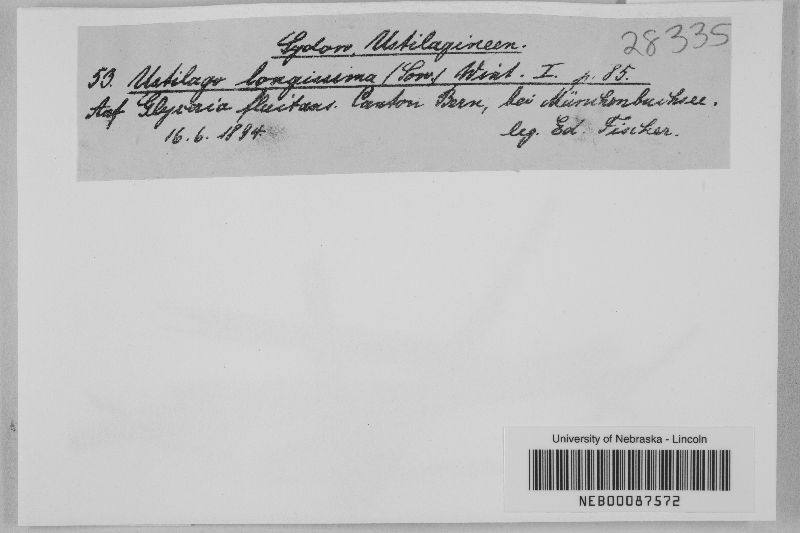 28335
Sydow, Ustilagineen.
53. Ustilago longissima (Sow.) Wint. I. p. 85.
Auf Glyceria fluitans. Canton Bern, bei Münchenbuchsee.
16. 6. 1894 leg. Ed. Fischer.
University of Nebraska - Lincoln
NEB00087572